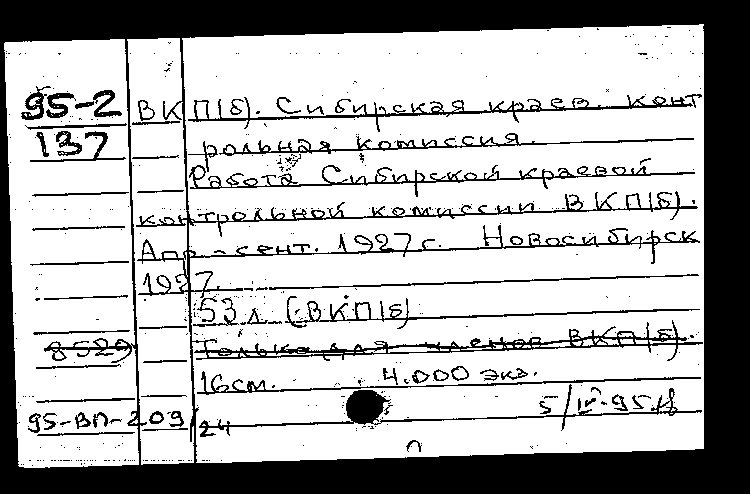 95-2 ВКП(б). Сибирская краев. конт
137 рольная комиссия.
Работа Сибирской краевой
контрольной комиссии ВКП(б).
Апр-сент. 1927 г. Новосибирск
1927.
53 л. (ВКП(б)
8529 Только для членов ВКП(б).
16см. 4.000 экз.
5/IV-95
95-ВП-209/24